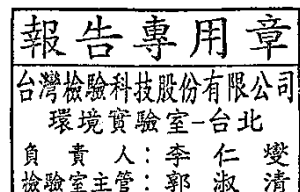 報告專用章
台灣檢驗科技股份有限公司
環境實驗室-台北
負責人:李仁燮
檢驗室主管:郭淑清